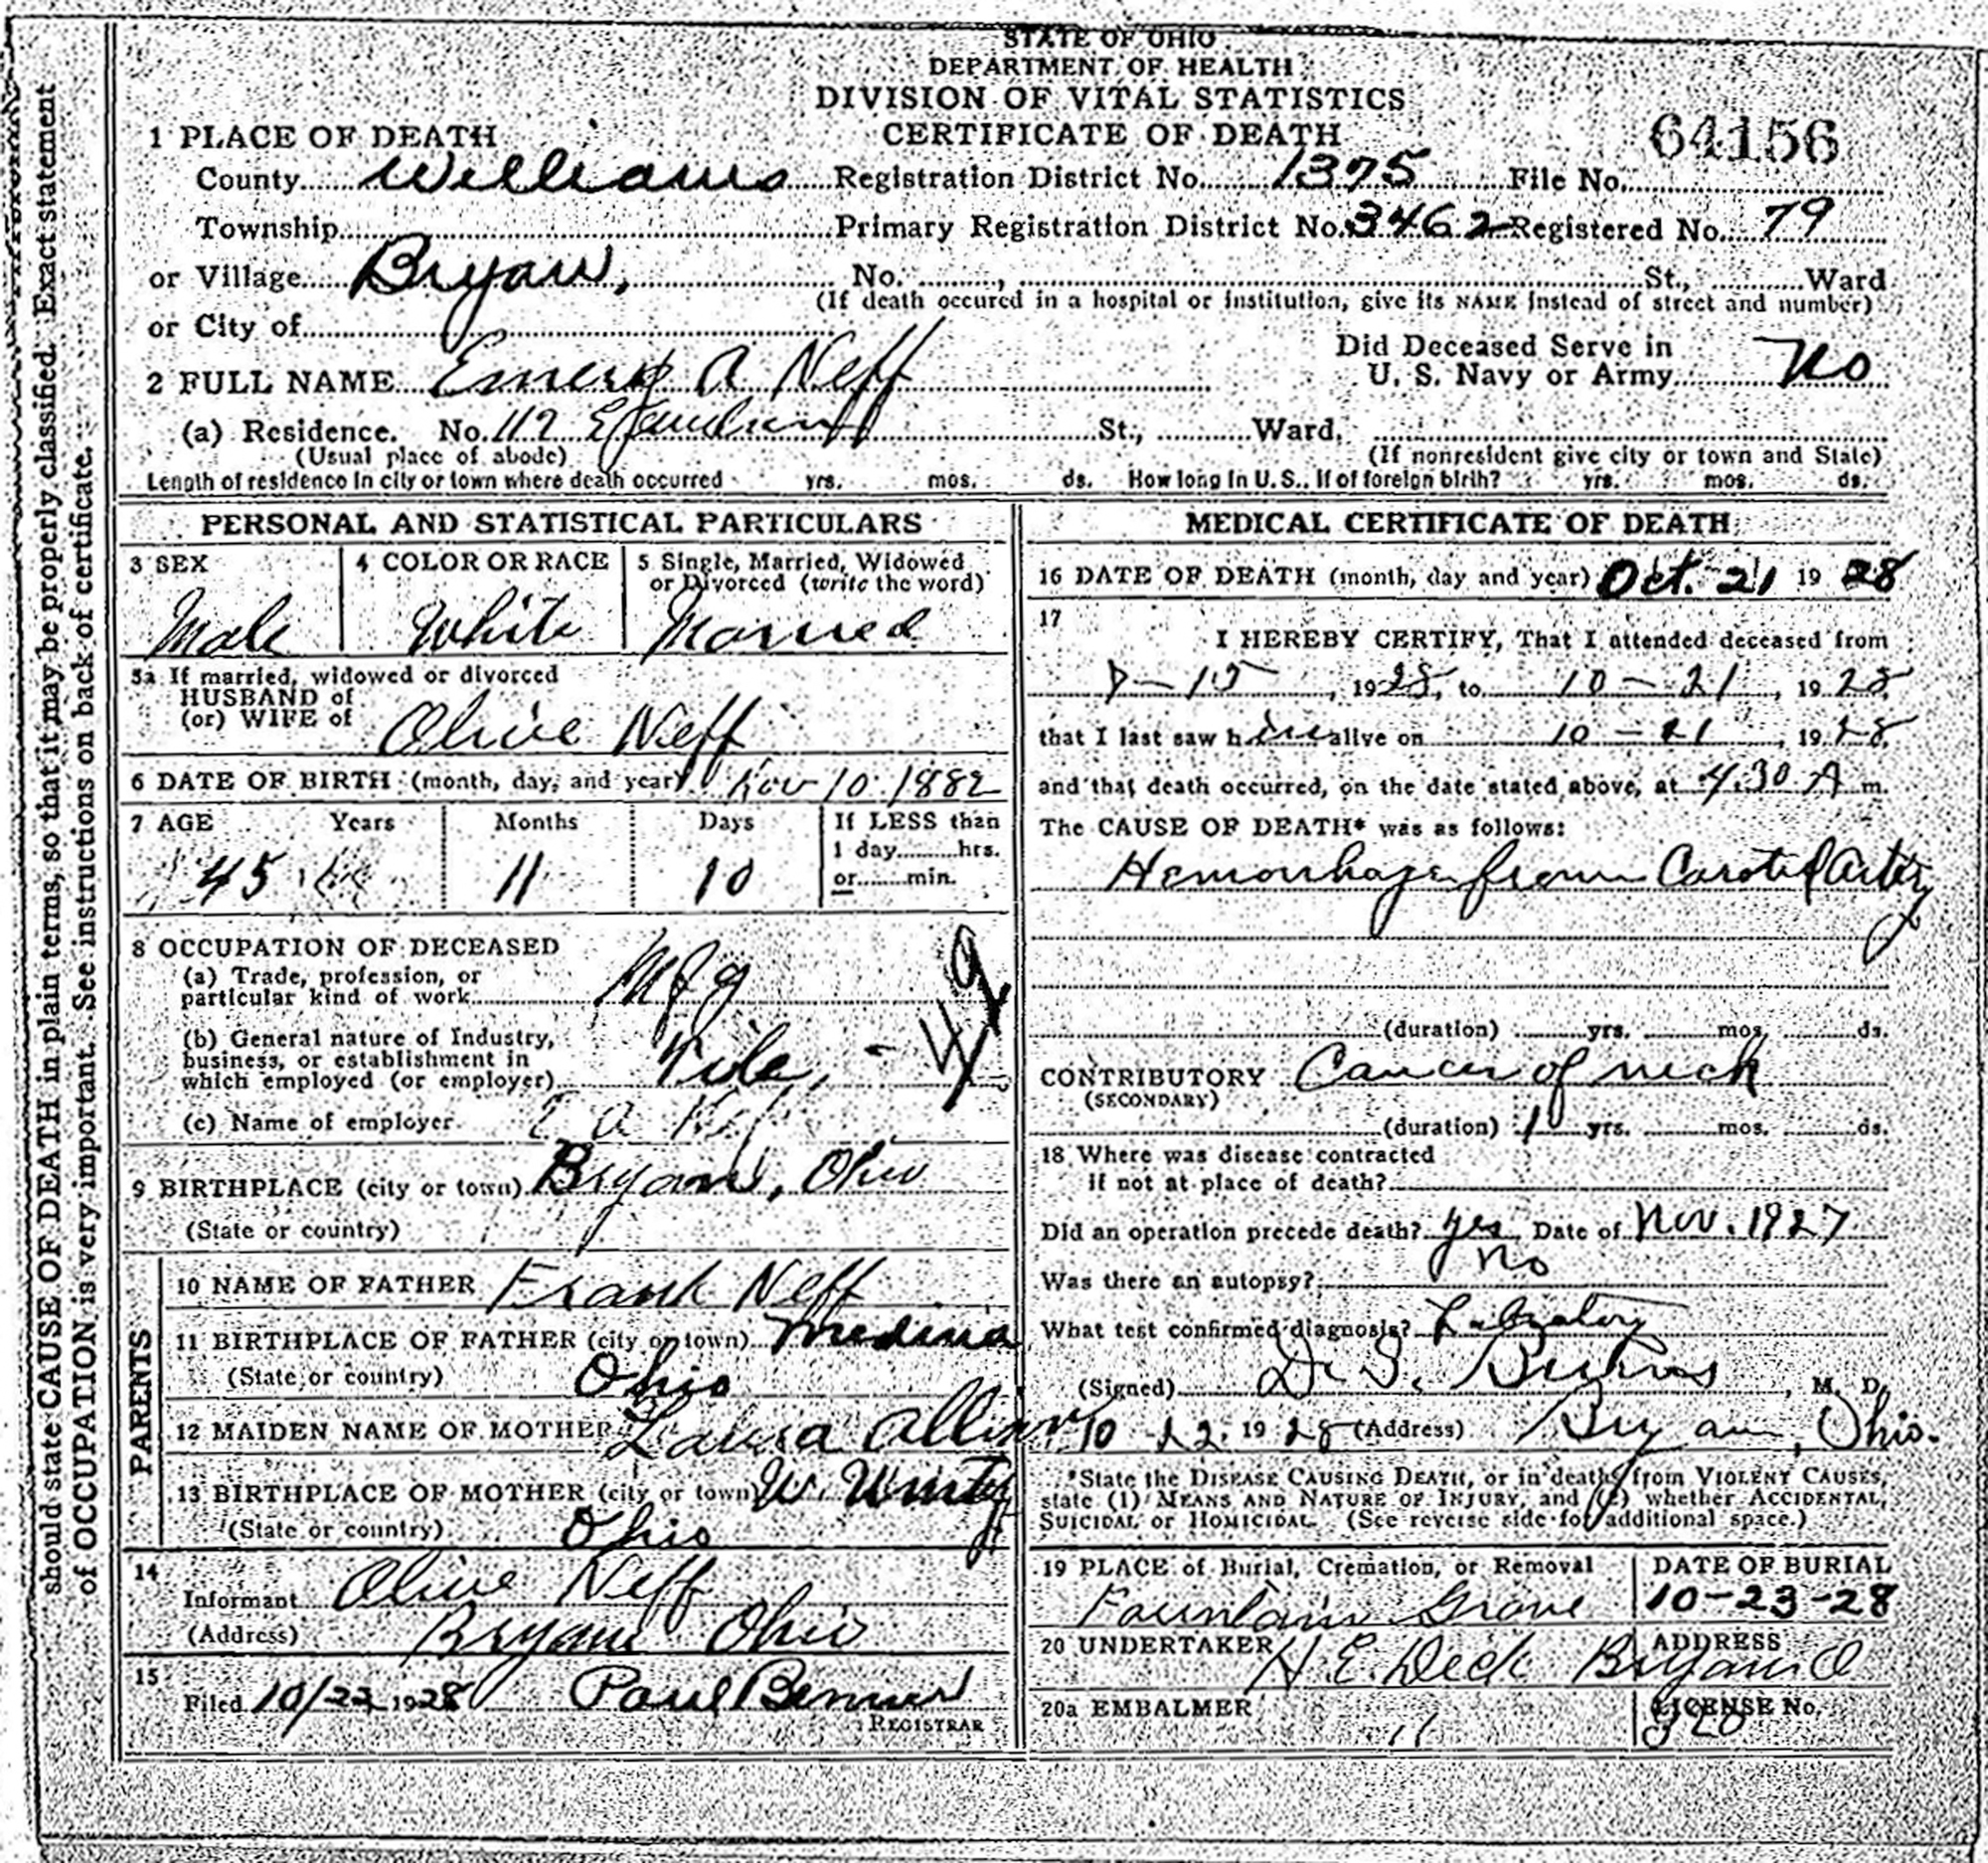 STATE OF OHIO
DEPARTMENT OF HEALTH
DIVISION OF VITAL STATISTICS
CERTIFICATE OF DEATH
64156
1 PLACE OF DEATH
County Williams Registration District No. 1375 File No.
Township Primary Registration District No. 3462 Registered No. 79
or Village Bryan, No. , St., Ward
(If death occured in a hospital or institution, give its NAME instead of street and number)
or City of
Did Deceased Serve in
U. S. Navy or Army No
2 FULL NAME Emery A Neff
(a) Residence. No. 112 E St., Ward,
(Usual place of abode) (If nonresident give city or town and State)
Length of residence in city or town where death occurred yrs. mos. ds. How long in U. S., if of foreign birth? yrs. mos. ds.
PERSONAL AND STATISTICAL PARTICULARS
3 SEX 4 COLOR OR RACE 5 Single, Married, Widowed
or Divorced (write the word)
Male White Married
5a If married, widowed or divorced
HUSBAND of
(or) WIFE of Olive Neff
6 DATE OF BIRTH (month, day, and year) Nov 10 1882
7 AGE Years Months Days If LESS than
1 day hrs.
or min.
45 11 10
8 OCCUPATION OF DECEASED
(a) Trade, profession, or
particular kind of work Mfg
(b) General nature of Industry,
business, or establishment in
which employed (or employer) Tile,
(c) Name of employer E A Neff
9 BIRTHPLACE (city or town) Bryan, Ohio
(State or country)
PARENTS
10 NAME OF FATHER Frank Neff
11 BIRTHPLACE OF FATHER (city or town) Medina
(State or country) Ohio
12 MAIDEN NAME OF MOTHER Laura
13 BIRTHPLACE OF MOTHER (city or town) W. Unity
(State or country) Ohio
14
Informant Olive Neff
(Address) Bryan Ohio
15
Filed 10/23 1928 Paul Benner
REGISTRAR
MEDICAL CERTIFICATE OF DEATH
16 DATE OF DEATH (month, day and year) Oct. 21 19 28
17
I HEREBY CERTIFY, That I attended deceased from
15, 1928, to 10-21, 1928,
that I last saw him alive on 10-21, 1928,
and that death occurred, on the date stated above, at 4:30 A m.
The CAUSE OF DEATH* was as follows:
Hemorrhage from Carotid Artery
(duration) yrs. mos. ds.
CONTRIBUTORY Cancer of neck
(SECONDARY)
(duration) 1 yrs. mos. ds.
18 Where was disease contracted
if not at place of death?
Did an operation precede death? yes Date of Nov. 1927
Was there an autopsy? No
What test confirmed diagnosis? Labratory
(Signed) , M. D.
10 - 22, 19 28 (Address) Bryan, Ohio.
*State the DISEASE CAUSING DEATH, or in deaths from VIOLENT CAUSES,
state (1) MEANS AND NATURE OF INJURY, and (2) whether ACCIDENTAL,
SUICIDAL or HOMICIDAL. (See reverse side for additional space.)
19 PLACE of Burial, Cremation, or Removal DATE OF BURIAL
Fountain Grove 10-23-28
20 UNDERTAKER H. E. Deck ADDRESS Bryan O
20a EMBALMER " LICENSE No.
should state CAUSE OF DEATH in plain terms, so that it may be properly classified. Exact statement
of OCCUPATION is very important. See instructions on back of certificate.